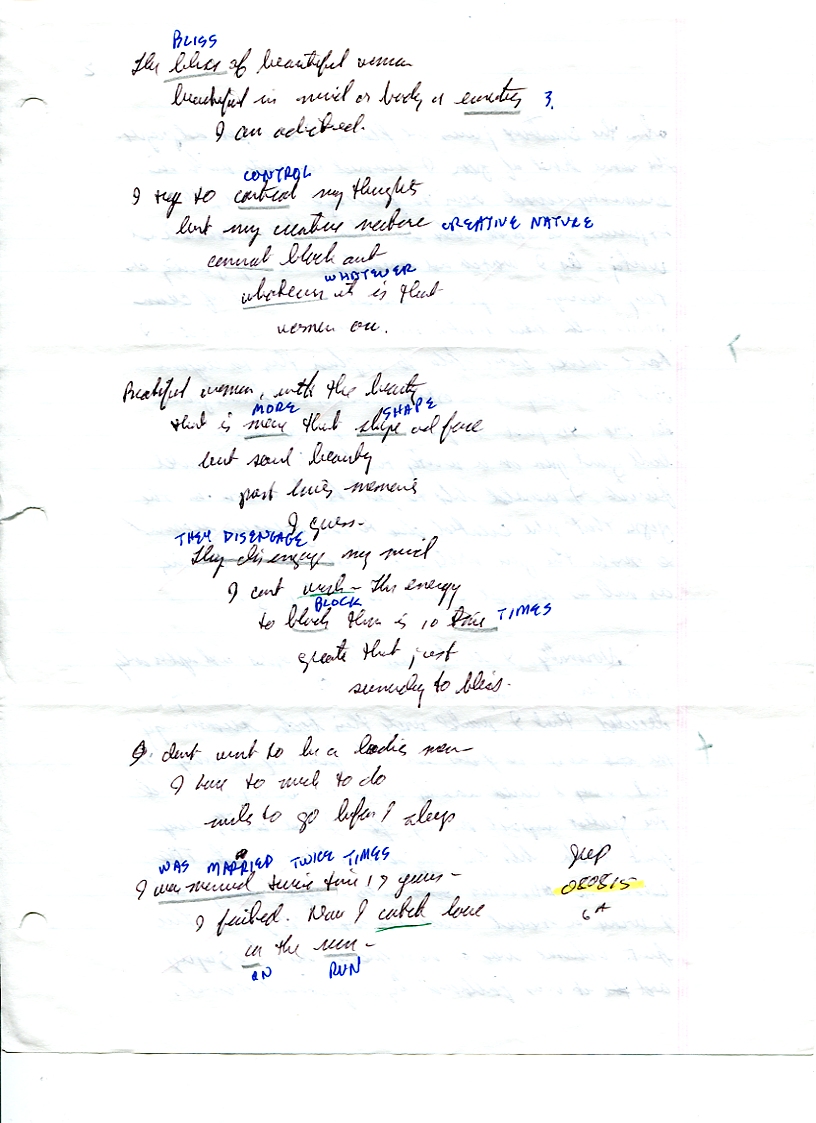 BLISS
The bliss of beautiful women
beautiful in mind or body or emotions 3.
I am addicted.
CONTROL
I try to control my thoughts
but my creative nature CREATIVE NATURE
cannot block out
WHATEVER
whatever it is that
women are.
Beautiful women, with the beauty
MORE SHAPE
that is more that shape and face
but soul beauty
past lives memories
I guess-
THEY DISENGAGE
They disengage my mind
I cant - The energy
BLOCK
to block them is 10 time TIMES
greater that just
surrender to bliss.
I dont want to be a ladies man-
I have to much to do
miles to go before I sleep
WAS MARRIED TWICE TIMES
I was married twice time 17 years-
I failed. Now I catch love
on the run-
ON RUN
080815
6A